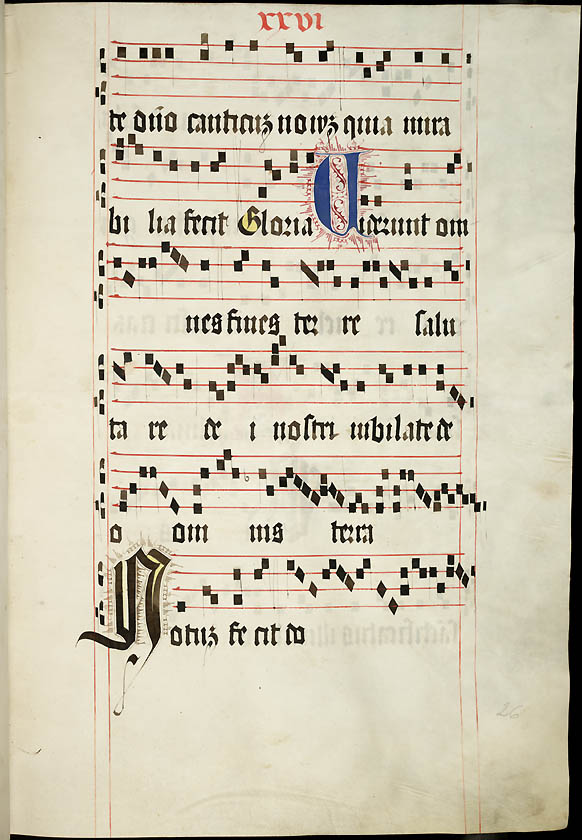 xxvi
te dn̄o canticuʒ novuʒ quia mira
bi lia fecit Gloria Viderunt om
nes fines ter re salu
ta re de i nostri iubilate de
o om nis terra
Notuʒ fe cit do
26